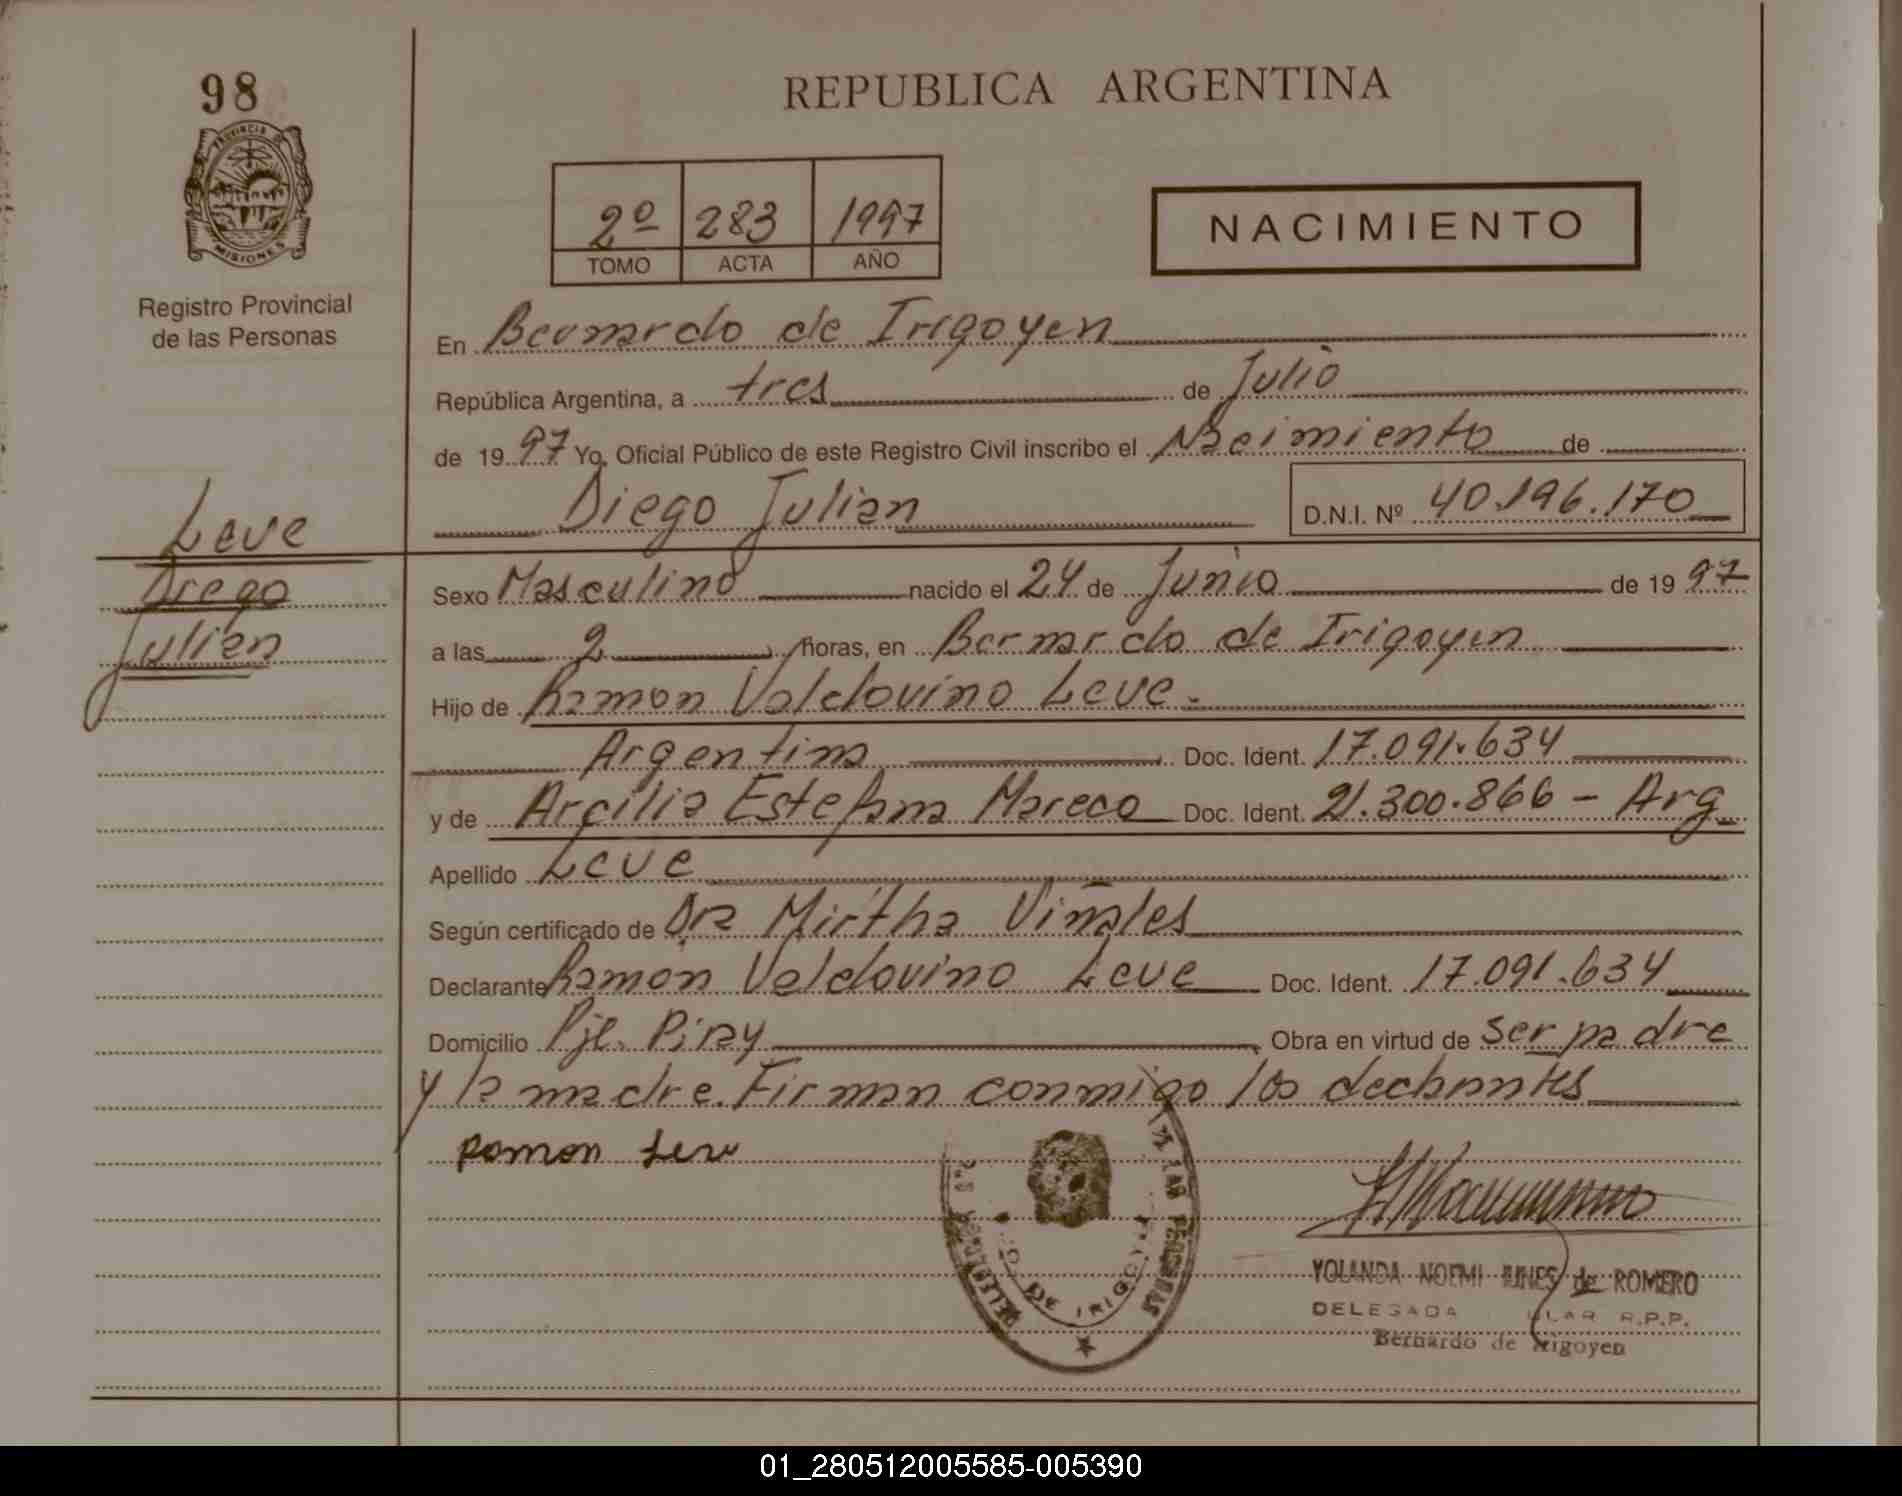 98
PROVINCIA DE
MISIONES
Registro Provincial
de las Personas
REPUBLICA ARGENTINA
2º 283 1997
TOMO ACTA AÑO
NACIMIENTO
En Bernardo de Irigoyen
República Argentina, a tres de Julio
de 1997 Yo, Oficial Público de este Registro Civil inscribo el Nacimiento de
Diego Julian D.N.I. Nº 40.196.170
Leve
Diego
Julian
Sexo Masculino nacido el 24 de Junio de 1997
a las 2 horas, en Bernardo de Irigoyen
Hijo de Ramon Valdovino Leve.
Argentina Doc. Ident. 17.091.634
y de Arcilia Estefana Mareco Doc. Ident. 21.300.866 - Arg
Apellido Leve
Según certificado de Dra Mirtha Viñales
Declarante Ramon Valdovino Leve Doc. Ident. 17.091.634
Domicilio Pje. Piray Obra en virtud de ser padre
y la madre. Firman conmigo los declarantes
Ramon Leve
DE LAS PERSONAS
DE IRIGOYEN
YOLANDA NOEMI de ROMERO
DELEGADA R.P.P.
Bernardo de Irigoyen
01_280512005585-005390